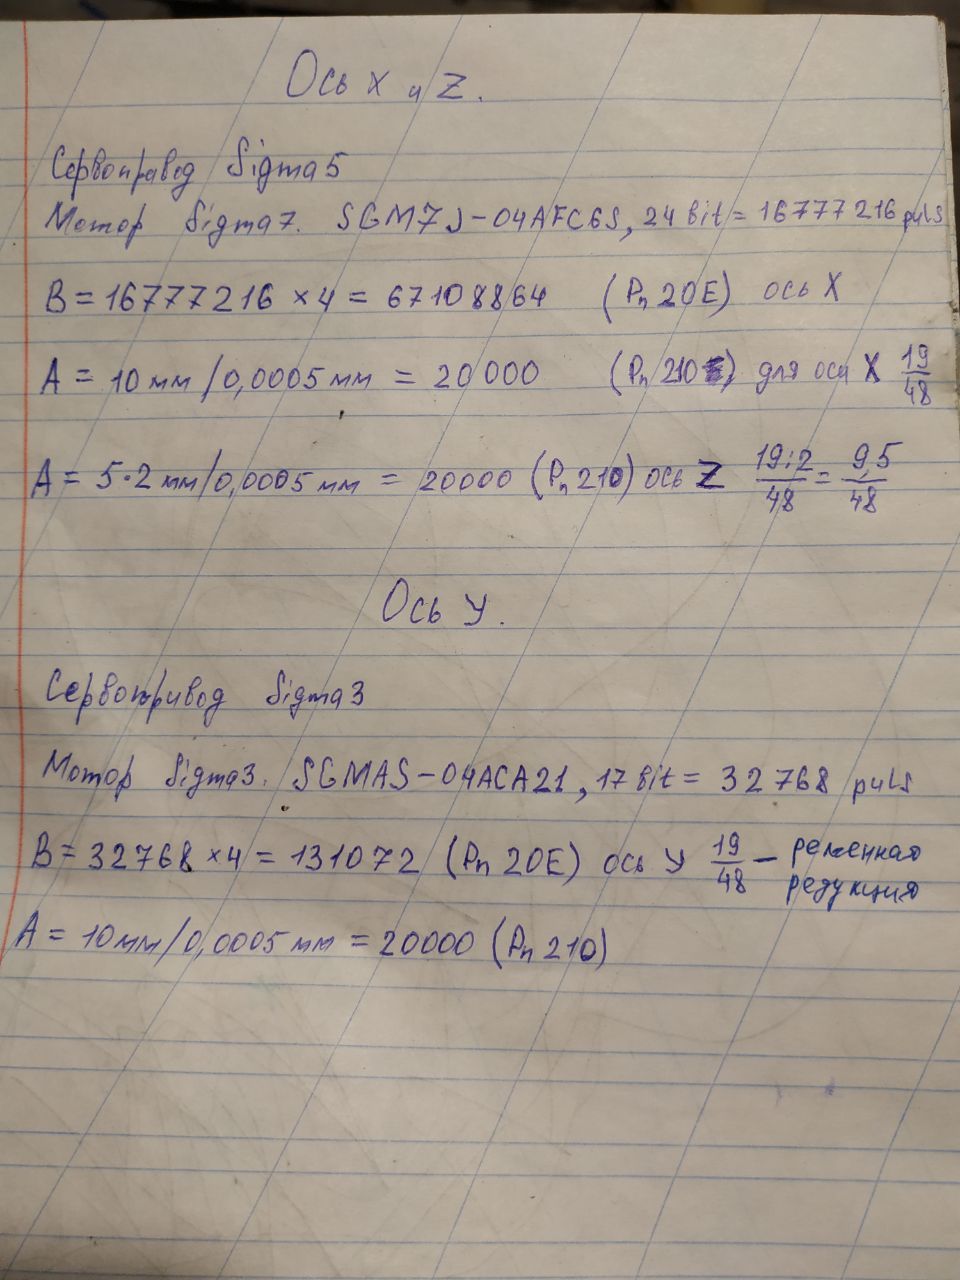 Ось X и Z.
Сервопривод Sigma5
Мотор Sigma7. SGM7J-04AFC6S, 24 bit = 16777216 puls
B = 16777216 × 4 = 67108864 (Pn 20E) ось X
A = 10 мм / 0,0005 мм = 20000 (Pn 210) для оси X 19/48
A = 5·2 мм/0,0005 мм = 20000 (Pn 210) ось Z 19:2/48 = 9,5/48
Ось У.
Сервопривод Sigma3
Мотор Sigma3. SGMAS-04ACA21, 17 bit = 32768 puls
B = 32768 × 4 = 131072 (Pn 20E) ось У 19/48 – ременная редукция
A = 10 мм/0,0005 мм = 20000 (Pn 210)